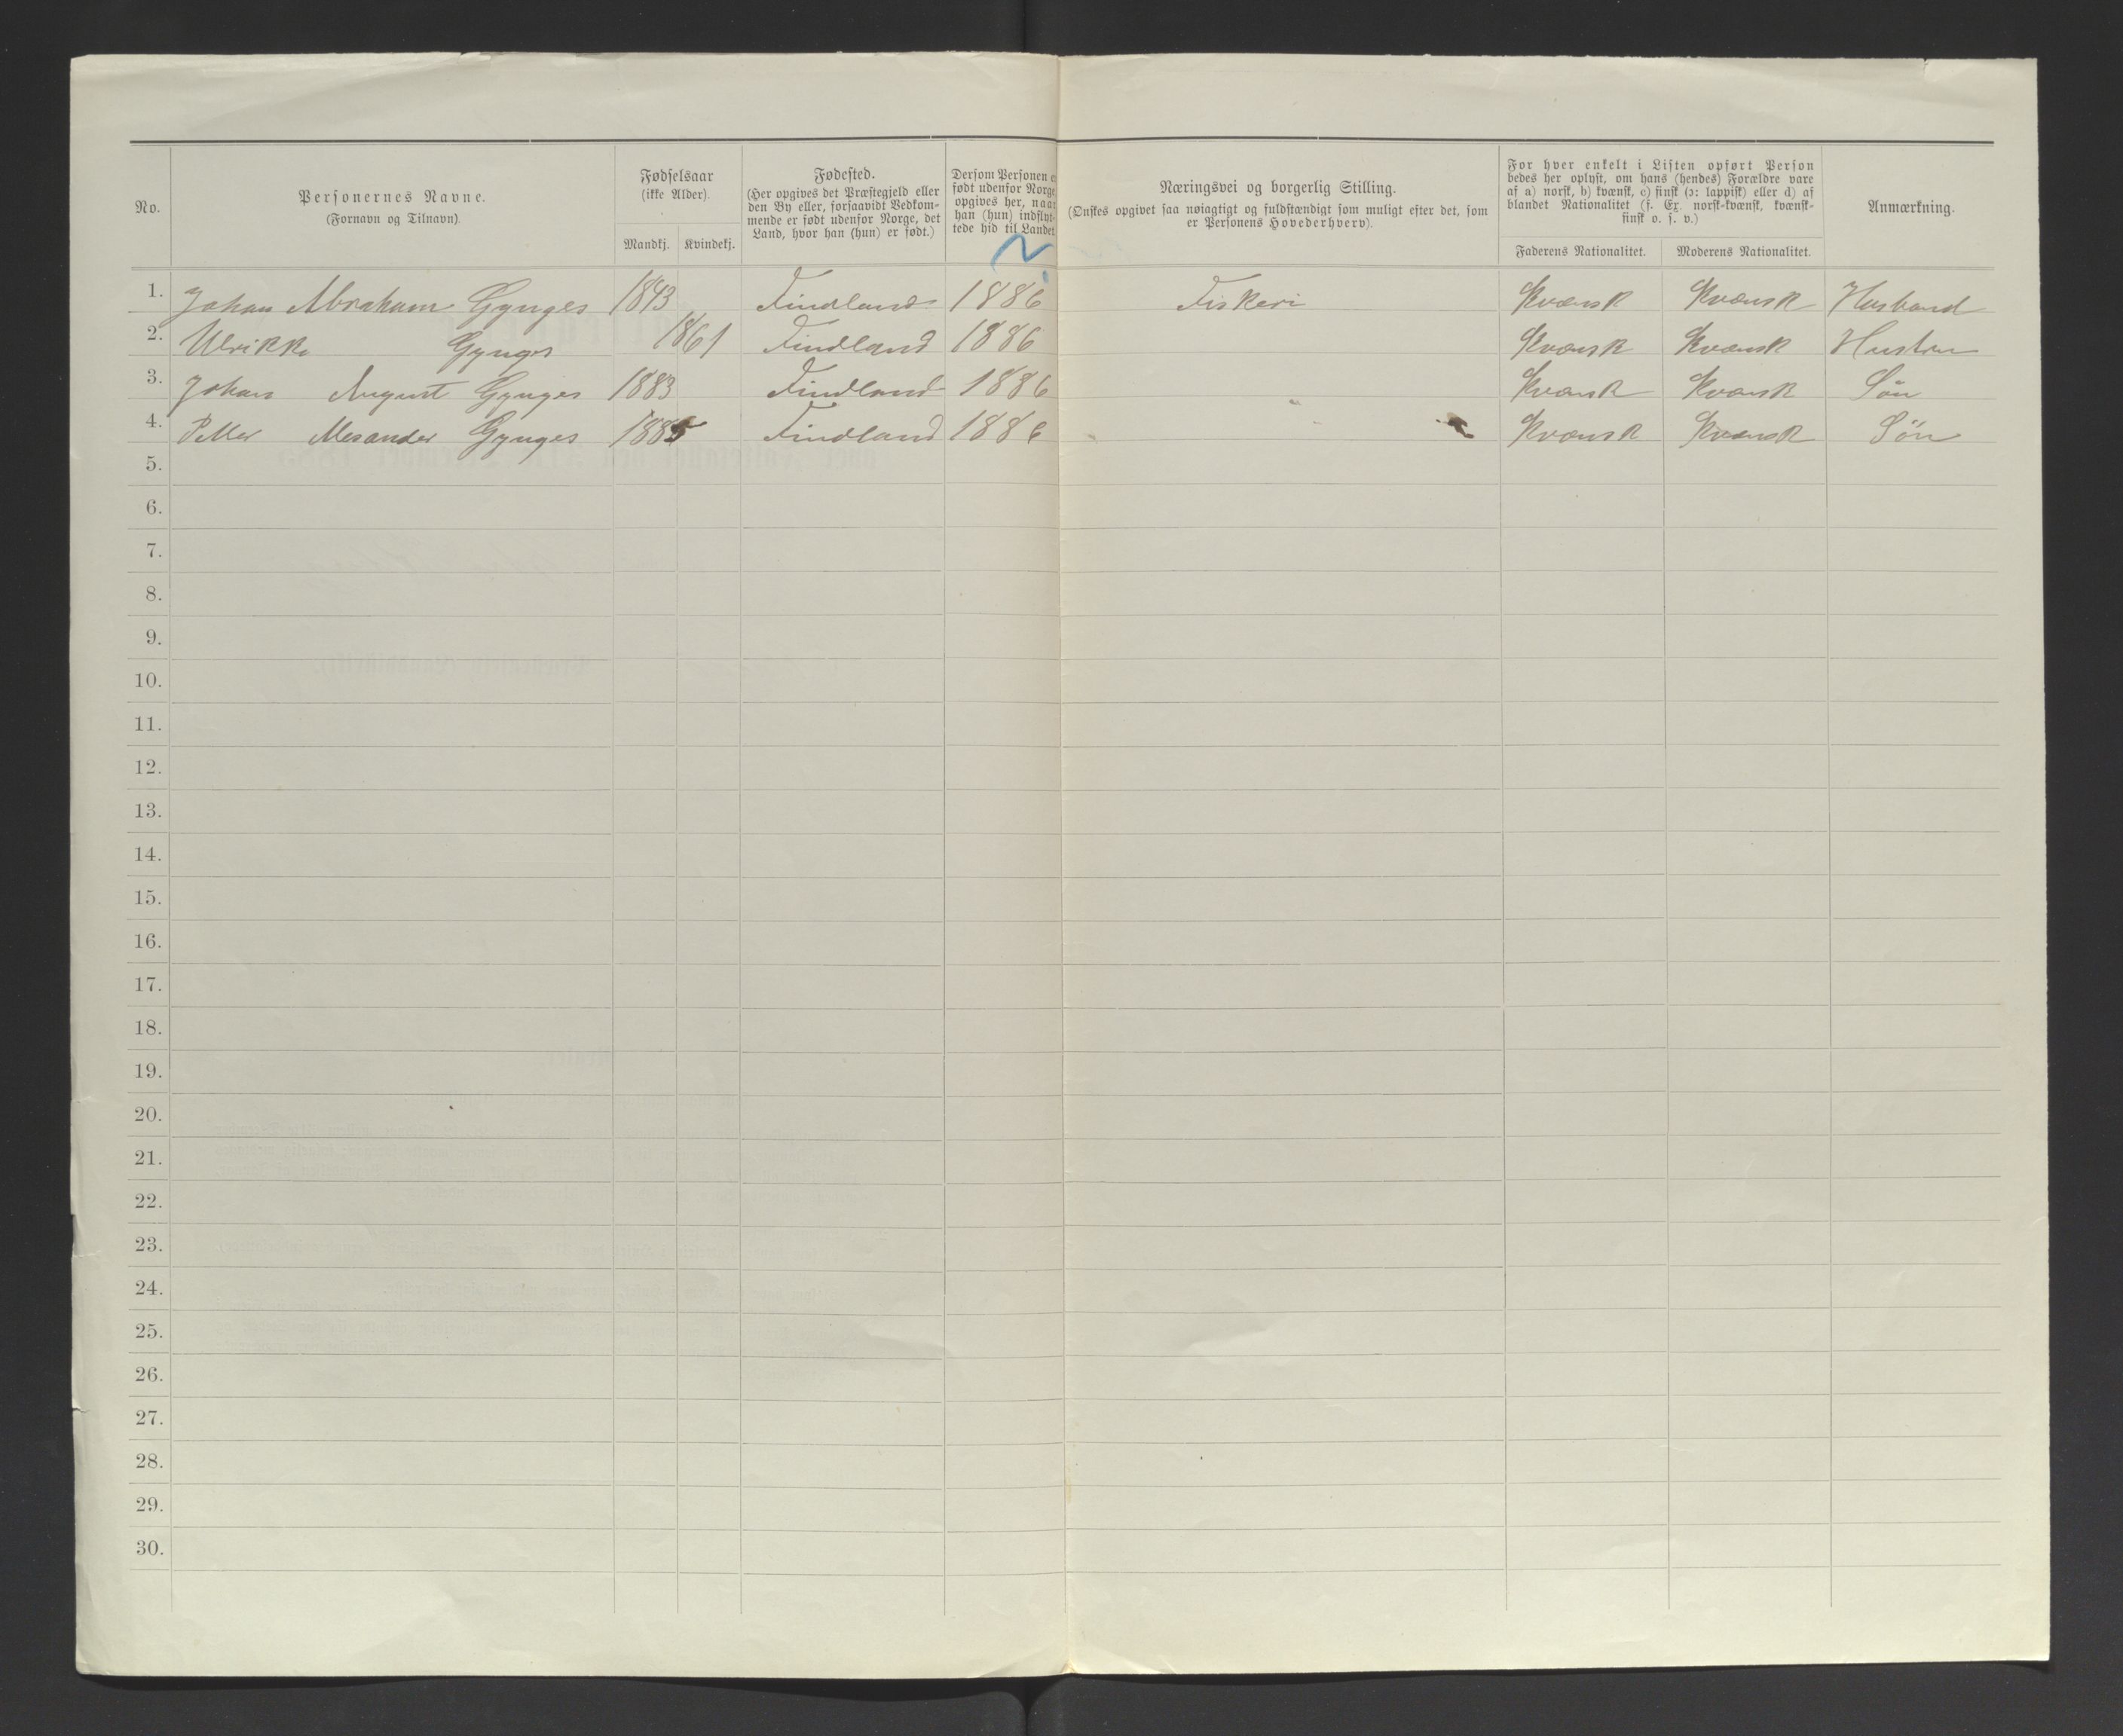 No.
Personernes Navne.
(Fornavn og Tilnavn).
Fødselsaar
(ikke Alder).
Mandkj. Kvindekj.
Fødested.
(Her opgives det Præstegjeld eller
den By eller, forsaavidt Vedkom-
mende er født udenfor Norge, det
Land, hvor han (hun) er født.)
Dersom Personen e
født udenfor Norge,
opgives her, naar
han (hun) indflyt-
tede hid til Landet
Næringsvei og borgerlig Stilling.
(Ønskes opgivet saa nøiagtigt og fuldstændigt som muligt efter det, som
er Personens Hovederhverv).
For hver enkelt i Listen opført Person
bedes her oplyst, om hans (hendes) Forældre vare
af a) norsk, b) kvænsk, c) finsk (ɔ: lappisk) eller d) af
blandet Nationalitet (f. Ex. norsk-kvænsk, kvænsk-
finsk o. s. v.)
Faderens Nationalitet. Moderens Nationalitet.
Anmærkning.
1. Johan Abraham Gynges 1843 Findland 1886 Fiskeri Kvænsk Kvænsk Husband
2. Ulrikka Gynges 1861 Findland 1886 Kvænsk Kvænsk Hustru
3. Johan August Gynges 1883 Findland 1886 Kvænsk Kvænsk Sön
4. Petter Alexander Gynges 1885 Findland 1886 Kvænsk Kvænsk Sön
5.
6.
7.
8.
9.
10.
11.
12.
13.
14.
15.
16.
17.
18.
19.
20.
21.
22.
23.
24.
25.
26.
27.
28.
29.
30.